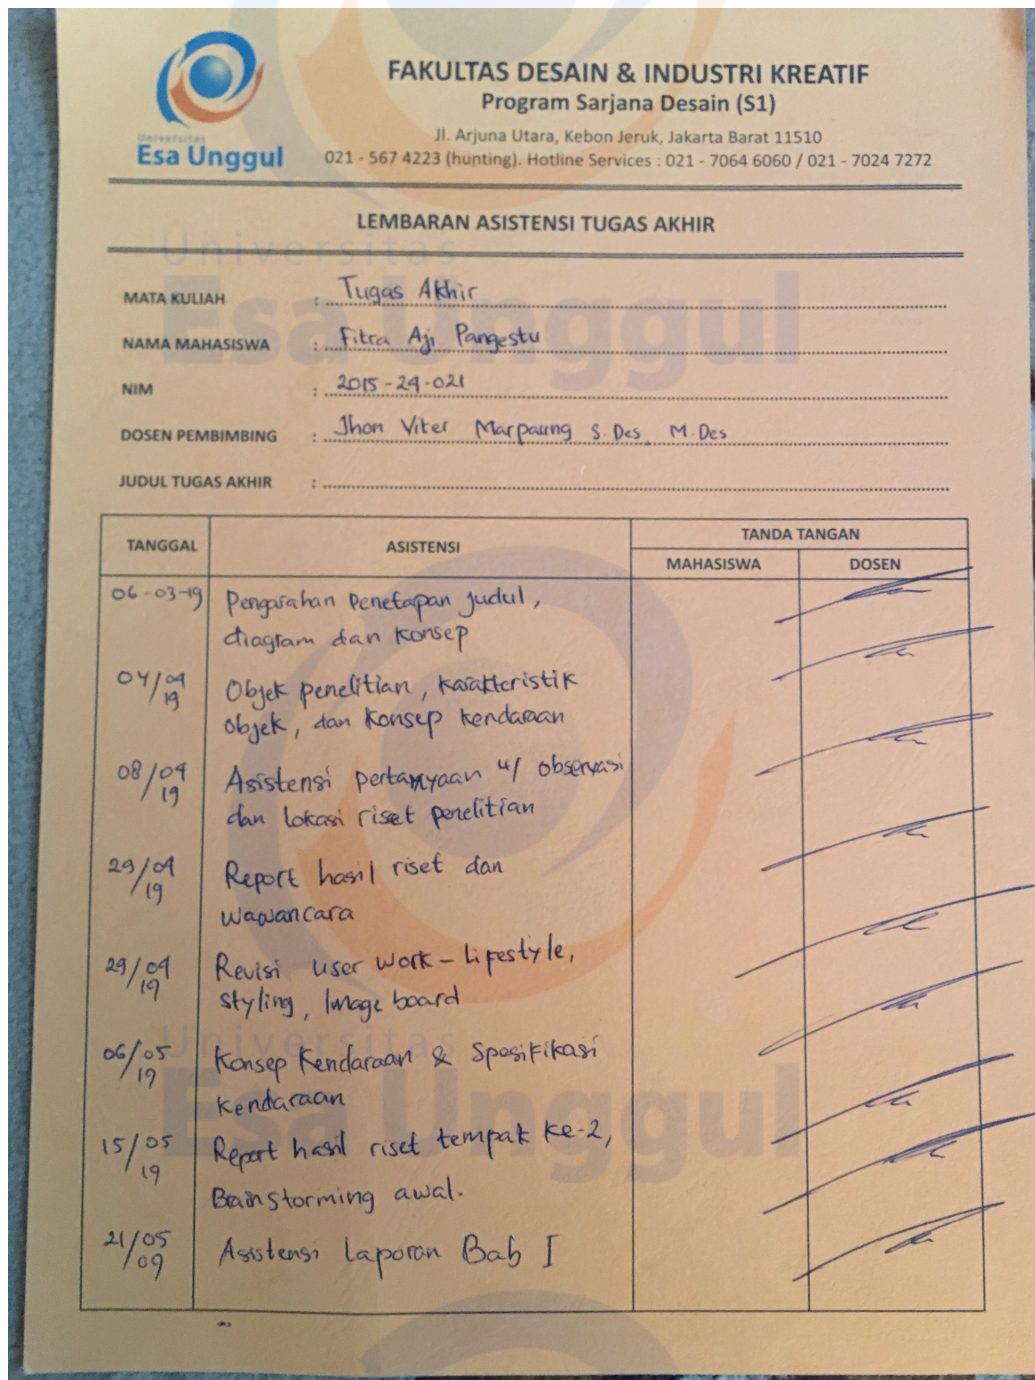 Universitas
Esa Unggul
FAKULTAS DESAIN & INDUSTRI KREATIF
Program Sarjana Desain (S1)
Jl. Arjuna Utara, Kebon Jeruk, Jakarta Barat 11510
021 - 567 4223 (hunting). Hotline Services : 021 - 7064 6060 / 021 - 7024 7272
LEMBARAN ASISTENSI TUGAS AKHIR
Universitas
Esa Unggul
MATA KULIAH : Tugas Akhir
NAMA MAHASISWA : Fitra Aji Pangestu
NIM : 2015-24-021
DOSEN PEMBIMBING : Jhon Viter Marpaung S.Des M.Des
JUDUL TUGAS AKHIR :
TANGGAL ASISTENSI TANDA TANGAN
MAHASISWA DOSEN
06-03-19 Pengarahan Penetapan Judul,
diagram dan Konsep
04/04 19 Objek penelitian, karakteristik
objek, dan Konsep kendaraan
08/04 19 Asistensi pertanyaan u/ observasi
dan lokasi riset penelitian
29/04 19 Report hasil riset dan
wawancara
29/04 19 Revisi user work - Lifestyle,
styling, Image board
06/05 19 Konsep Kendaraan & Spesifikasi
Kendaraan
15/05 19 Report hasil riset tempak ke-2,
Brainstorming awal.
21/05 09 Asistensi Laporan Bab I
Universitas
Esa Unggul